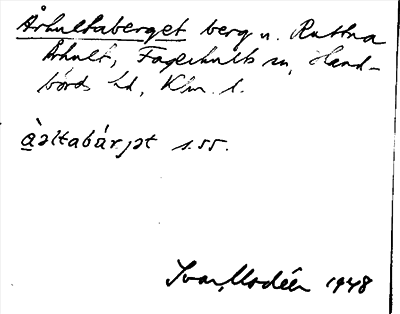 Århultaberget berg n. Ruttna
Århult, Fagerhults sn, Hand-
börds hd, Klm. l.
àəltabár.jət s.55.
Ivar Modéer 1948